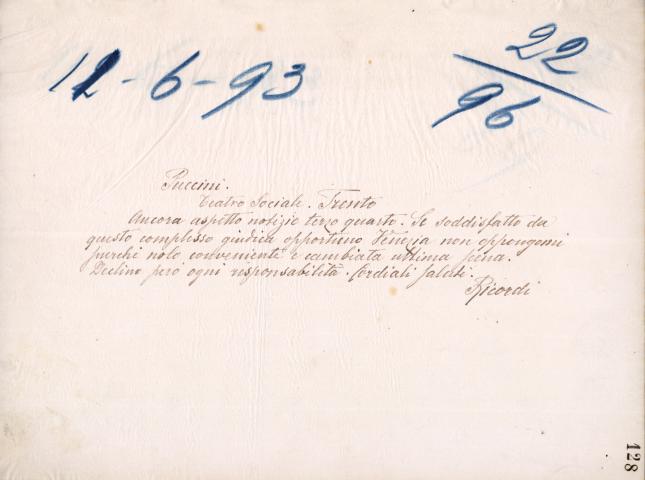 12-6-93
22
96
Puccini.
Teatro Sociale. Trento
Ancora aspetto notizie terzo quarto. Se soddisfatto da
questo complesso giudica opportuno Venezia non oppongomi
purchè nolo conveniente e cambiata ultima scena.
Declino però ogni responsabilità. Cordiali saluti.
Ricordi
128